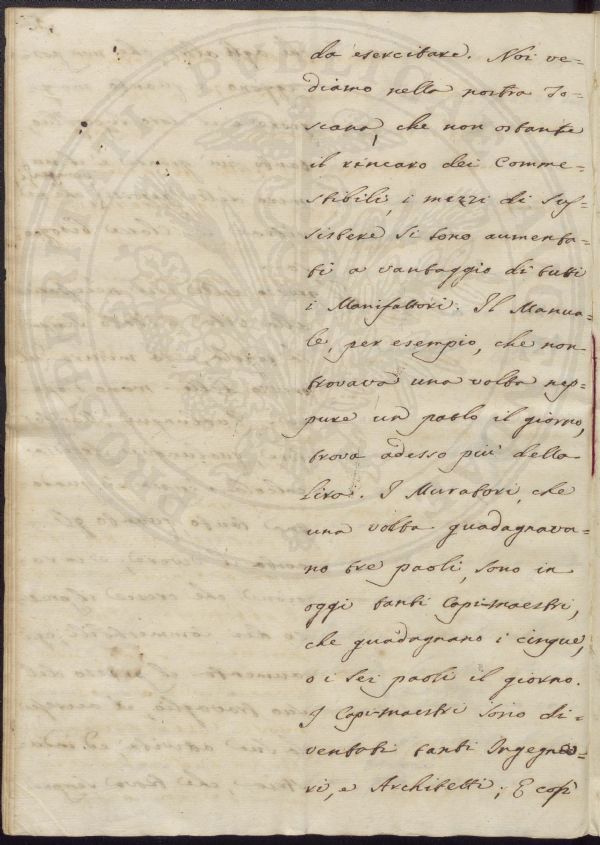 da esercitare. Noi ve-
diamo nella nostra To-
scana, che non ostante
il rincaro dei Comme-
stibili, i mezzi di sus-
sistere si sono aumenta-
ti a vantaggio di tutti
i Manifattori. Il Manua-
le, per esempio, che non
trovava una volta nep-
pure un paolo il giorno,
trova adesso più della
lira. I Muratori, che
una volta guadagnava-
no tre paoli, sono in
oggi tanti Capi-maestri,
che guadagnano i cinque,
o i sei paoli il giorno.
I Capi-maestri sono di-
ventati tanti Ingegne-
ri, e Architetti; E così